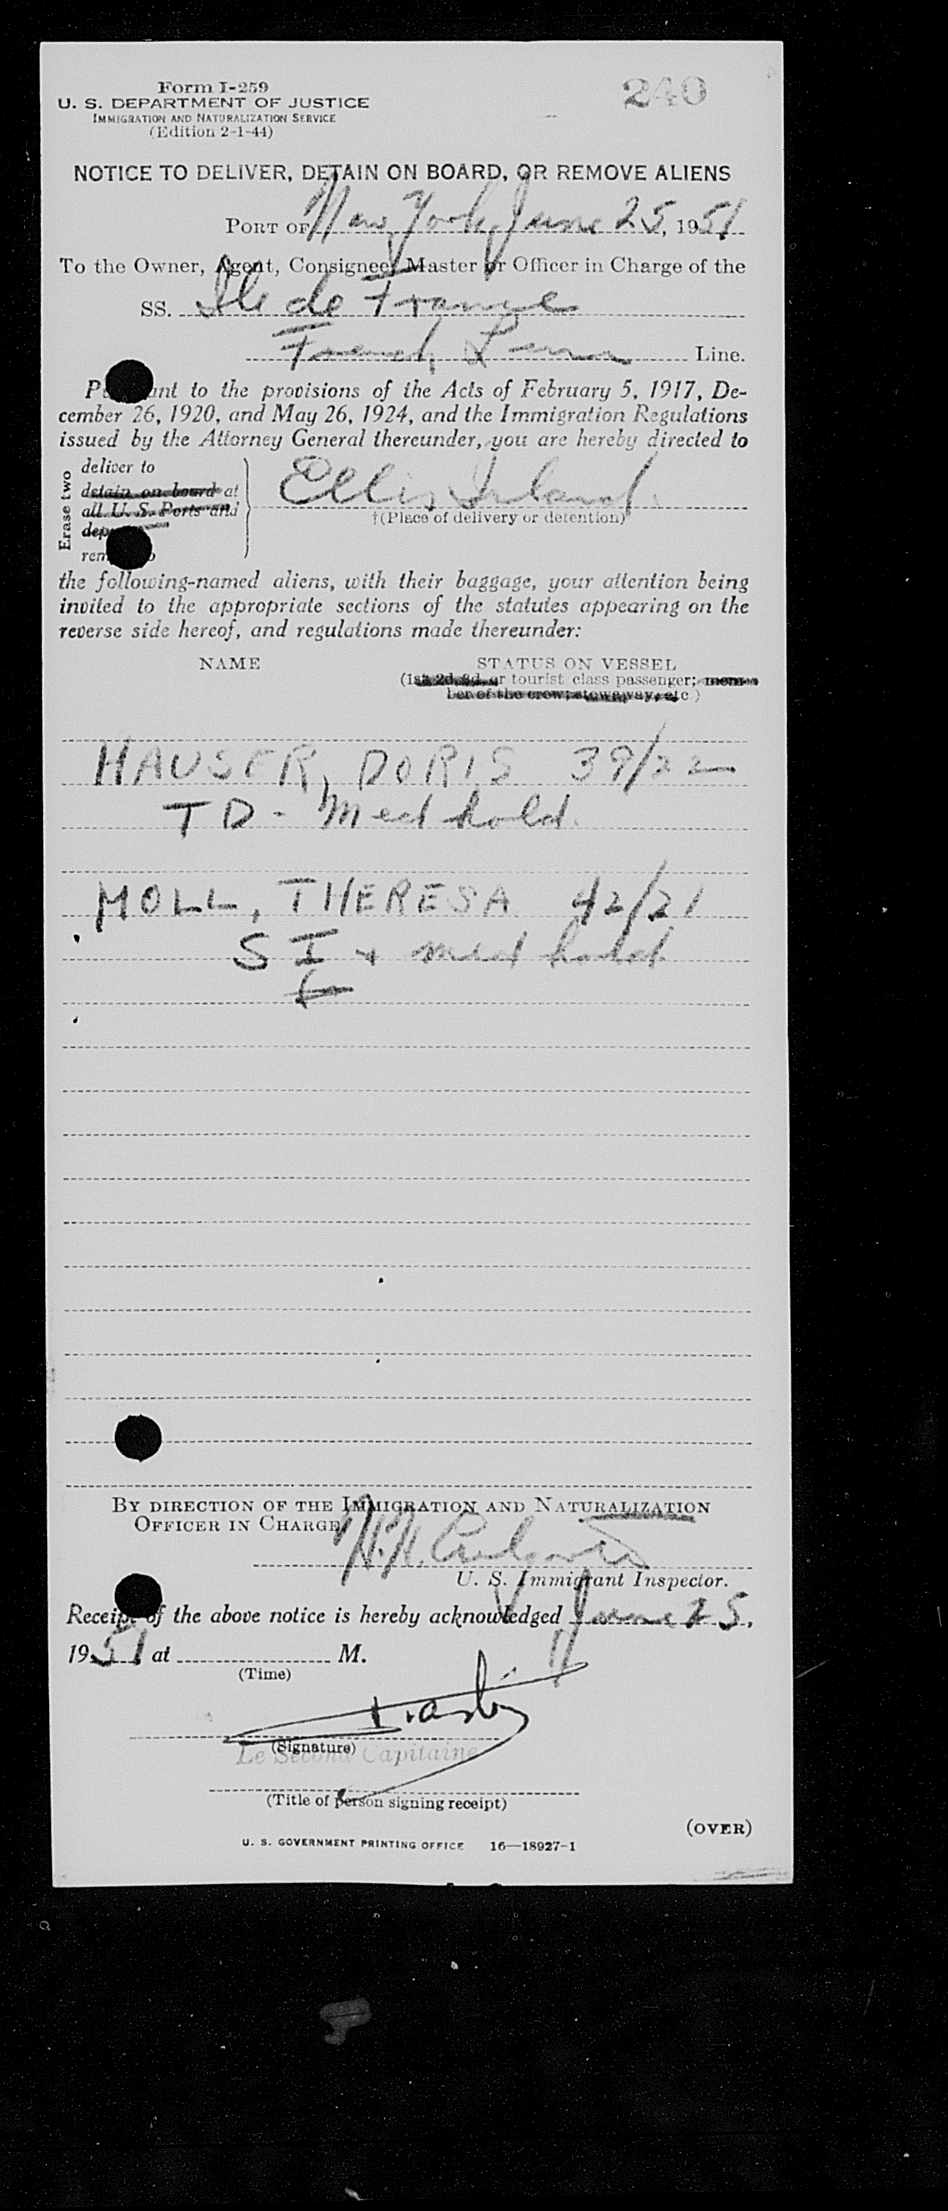 Form I-259
240
U. S. DEPARTMENT OF JUSTICE
IMMIGRATION AND NATURALIZATION SERVICE
(Edition 2-1-44)
NOTICE TO DELIVER, DETAIN ON BOARD, OR REMOVE ALIENS
PORT OF New York, June 25, 1951
To the Owner, Agent, Consignee, Master or Officer in Charge of the
SS. Ile de France
French Line.
to the provisions of the Acts of February 5, 1917, De-
cember 26, 1920, and May 26, 1924, and the Immigration Regulations
issued by the Attorney General thereunder, you are hereby directed to
Erase two
deliver to
detain on board at
all U. S. Ports and
Ellis Island
†(Place of delivery or detention)
the following-named aliens, with their baggage, your attention being
invited to the appropriate sections of the statutes appearing on the
reverse side hereof, and regulations made thereunder:
NAME STATUS ON VESSEL
(1st, 2d, 3d, or tourist class passenger; mem-
ber of the crew; stowaway, etc.)
HAUSER, DORIS 39/22
TD - Med hold.
MOLL, THERESA 42/21
SI + med hold
BY DIRECTION OF THE IMMIGRATION AND NATURALIZATION
OFFICER IN CHARGE
H.H.
U. S. Immigrant Inspector.
Receipt of the above notice is hereby acknowledged June 25,
1951 at M.
(Time)
(Signature)
Le Second Capitaine
(Title of person signing receipt)
(OVER)
U. S. GOVERNMENT PRINTING OFFICE 16—18927-1